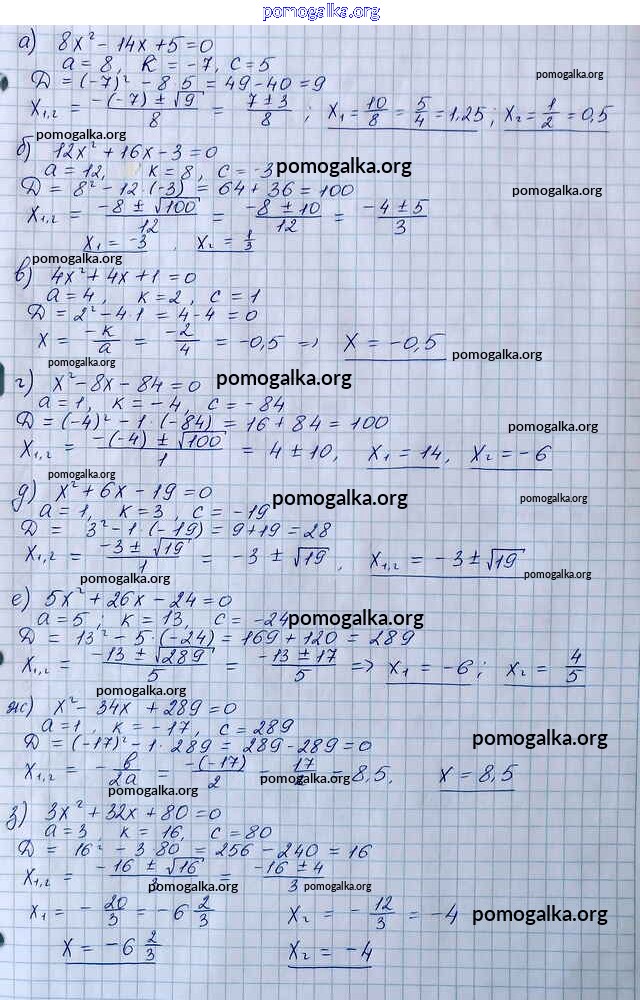 pomogalka.org
а) 8x² - 14x + 5 = 0
a = 8, K = -7, c = 5
D = (-7)² - 8·5 = 49 - 40 = 9
pomogalka.org
X₁,₂ = (-(-7) ± √9)/8 = (7 ± 3)/8 ; X₁ = 10/8 = 5/4 = 1,25 ; X₂ = 1/2 = 0,5
pomogalka.org
б) 12x² + 16x - 3 = 0
a = 12, k = 8, c = -3
pomogalka.org
D = 8² - 12·(-3) = 64 + 36 = 100
pomogalka.org
X₁,₂ = (-8 ± √100)/12 = (-8 ± 10)/12 = (-4 ± 5)/3
X₁ = -3, X₂ = 1/3
pomogalka.org
в) 4x² + 4x + 1 = 0
a = 4, k = 2, c = 1
pomogalka.org
D = 2² - 4·1 = 4 - 4 = 0
X = -k/a = -2/4 = -0,5 => X = -0,5
pomogalka.org
pomogalka.org
г) x² - 8x - 84 = 0
pomogalka.org
a = 1, k = -4, c = -84
D = (-4)² - 1·(-84) = 16 + 84 = 100
pomogalka.org
X₁,₂ = (-(-4) ± √100)/1 = 4 ± 10, X₁ = 14, X₂ = -6
pomogalka.org
д) x² + 6x - 19 = 0
pomogalka.org
pomogalka.org
a = 1, k = 3, c = -19
D = 3² - 1·(-19) = 9 + 19 = 28
X₁,₂ = (-3 ± √19)/1 = -3 ± √19, X₁,₂ = -3 ± √19
pomogalka.org
pomogalka.org
е) 5x² + 26x - 24 = 0
a = 5; k = 13, c = -24
pomogalka.org
D = 13² - 5·(-24) = 169 + 120 = 289
X₁,₂ = (-13 ± √289)/5 = (-13 ± 17)/5 => X₁ = -6; X₂ = 4/5
pomogalka.org
ж) x² - 34x + 289 = 0
a = 1, k = -17, c = 289
D = (-17)² - 1·289 = 289 - 289 = 0
pomogalka.org
X₁,₂ = -в/2a = -(-17)/2 = 17/2 = 8,5, X = 8,5
pomogalka.org
з) 3x² + 32x + 80 = 0
a = 3, k = 16, c = 80
D = 16² - 3·80 = 256 - 240 = 16
X₁,₂ = (-16 ± √16)/3 = (-16 ± 4)/3
pomogalka.org
pomogalka.org
X₁ = -20/3 = -6 2/3 X₂ = -12/3 = -4
pomogalka.org
X = -6 2/3 X₂ = -4